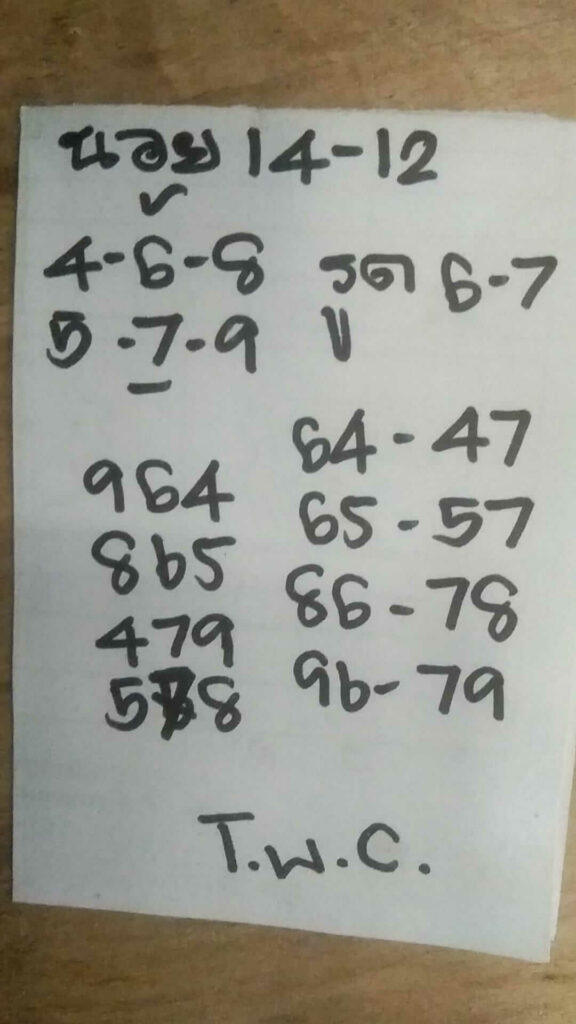 ฆอย 14-12
4-6-8 รูด 6-7
5-7-9 ||
964 64-47
865 65-57
479 86-78
578 96-79
T.W.C.